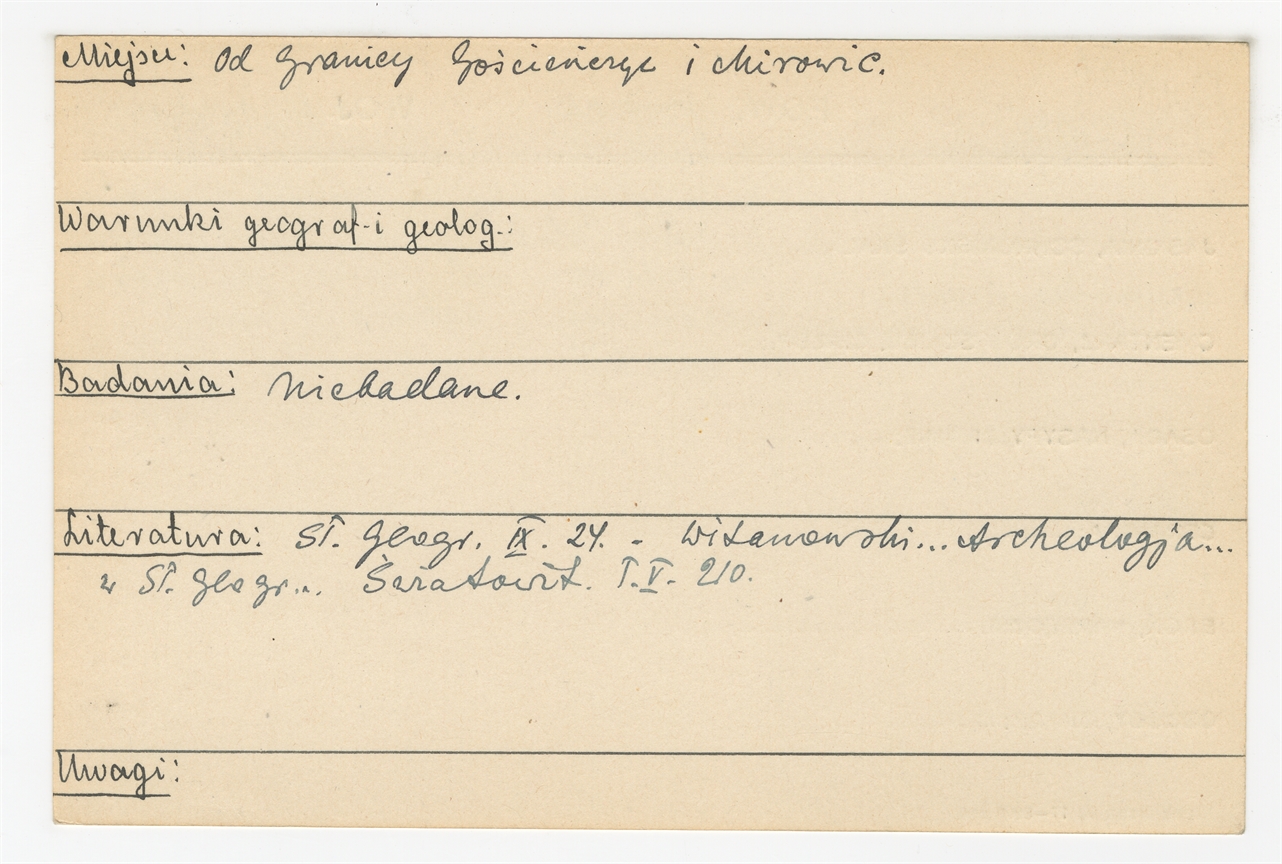 Miejsce: Od granicy Gościeńczyc i Mirowic.
Warunki geograf. i geolog.:
Badania: Niebadane.
Literatura: Sł. Geogr. IX. 24. - Witanowski... Archeologja...
w Sł. Geogr... Światowit. T. V. 210.
Uwagi: